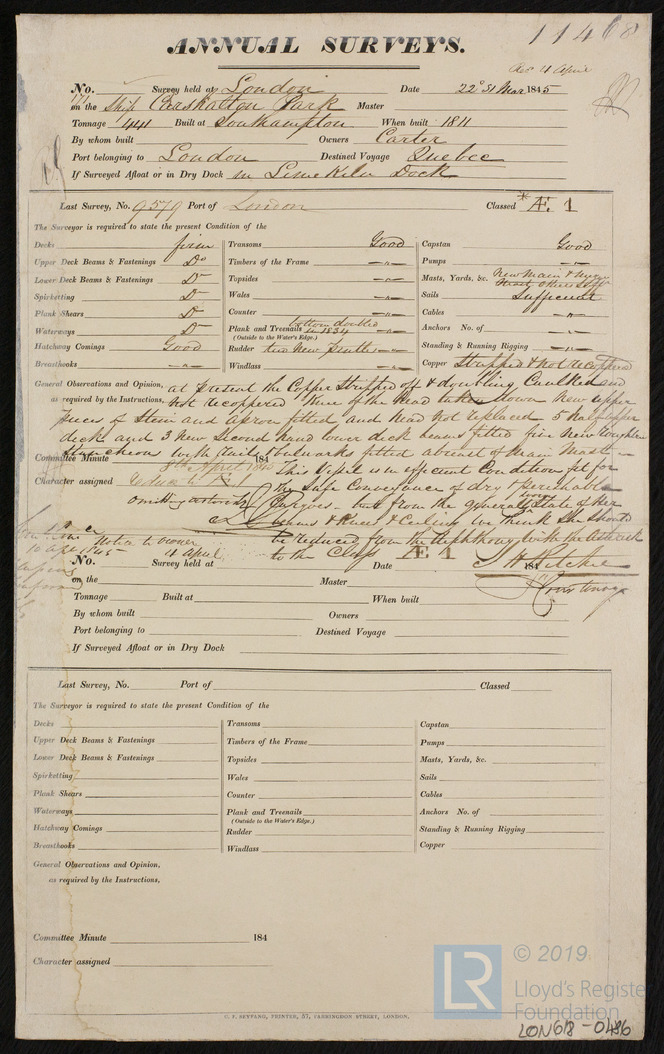 11468
ANNUAL SURVEYS.
Rec 4 April
No. Survey held at London Date 22d 31 Mar 1845
on the Ship Carshalton Park Master
Tonnage 441 Built at Southampton When built 1811
By whom built Owners Carter
Port belonging to London Destined Voyage Quebec
If Surveyed Afloat or in Dry Dock in Limekiln Dock
Last Survey, No. 9579 Port of London Classed *Æ. 1
The Surveyor is required to state the present Condition of the
Decks firm
Upper Deck Beams & Fastenings Do
Lower Deck Beams & Fastenings Do
Spirketting Do
Plank Shears Do
Waterways Do
Hatchway Comings Good
Breasthooks -"-
Transoms Good
Timbers of the Frame -"-
Topsides -"-
Wales -"-
Counter -"-
Plank and Treenails bottom doubled in 1834 -"-
(Outside to the Water's Edge.)
Rudder two New Pintles -"-
Windlass -"-
Capstan Good
Pumps -"-
Masts, Yards, &c. New Main & Mizen Mast others Suff
Sails Sufficient
Cables -"-
Anchors No. of -"-
Standing & Running Rigging -"-
Copper Stripped & not recoppered
General Observations and Opinion, at present the Copper Stripped off & doubling Caulked and
as required by the Instructions, not recoppered Knee of the Head taken down New upper
pieces of Stem and apron fitted and head not replaced 5 half upper
deck and 3 New Second hand lower deck beams fitted five New Roughtree
Stanchions with bulwarks fitted abreast of Main Mast
Committee Minute 8th April 1845 184
This Vessel is in efficient Condition fit for
Character assigned reduce to Æ 1
the Safe Conveyance of dry & perishable
omitting asterisk
Cargoes but from the general State of her
lower
beams & Knees & Ceiling We think She should
be reduced from the diphthong with the asterisk
Notice to owner
10 April 1845
4 April
to the Class Æ 1
No. Survey held at Date 184
on the Master
Tonnage Built at When built
By whom built Owners
Port belonging to Destined Voyage
If Surveyed Afloat or in Dry Dock
Last Survey, No. Port of Classed
The Surveyor is required to state the present Condition of the
Decks
Upper Deck Beams & Fastenings
Lower Deck Beams & Fastenings
Spirketting
Plank Shears
Waterways
Hatchway Comings
Breasthooks
Transoms
Timbers of the Frame
Topsides
Wales
Counter
Plank and Treenails
(Outside to the Water's Edge.)
Rudder
Windlass
Capstan
Pumps
Masts, Yards, &c.
Sails
Cables
Anchors No. of
Standing & Running Rigging
Copper
General Observations and Opinion,
as required by the Instructions,
Committee Minute 184
Character assigned
C. F. SEYFANG, PRINTER, 57, FARRINGDON STREET, LONDON.
LR
© 2019
Lloyd's Register
Foundation
LON618-0486